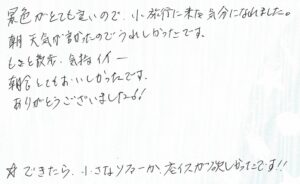 景色がとても良いので、小旅行に来た気分になれました。
朝 天気が良かったのでうれしかったです。
散歩、気持イイー
朝食とてもおいしかったです。
ありがとうございました♂♂
☆できたら、小さなソファーか、座イスが欲しかったです!!